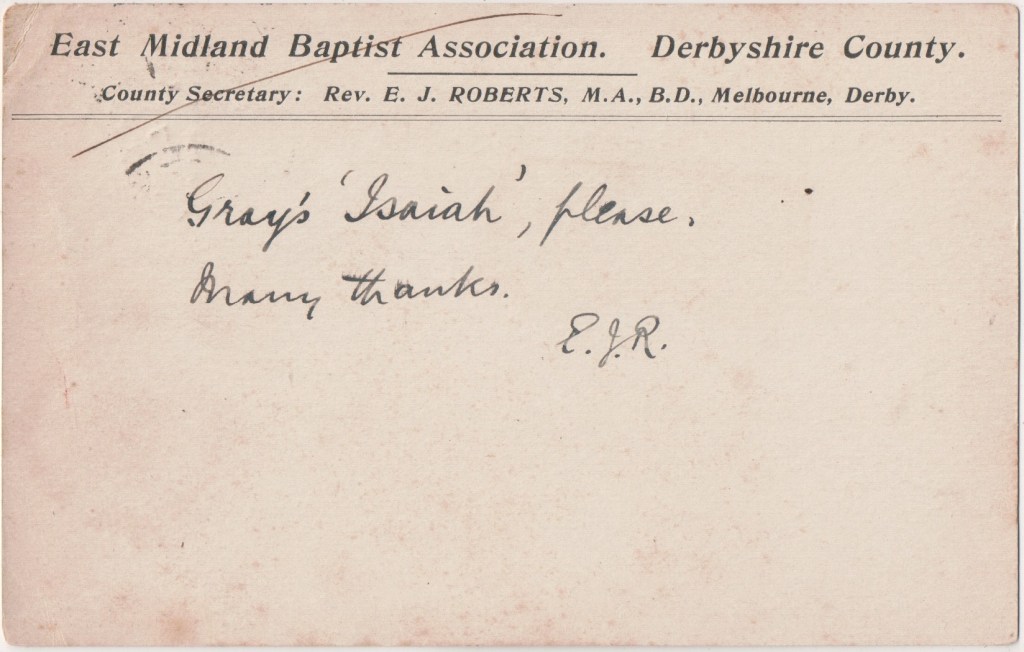 East Midland Baptist Association. Derbyshire County.
County Secretary: Rev. E. J. ROBERTS, M.A., B.D., Melbourne, Derby.
Gray's 'Isaiah', please.
Many thanks.
E.J.R.